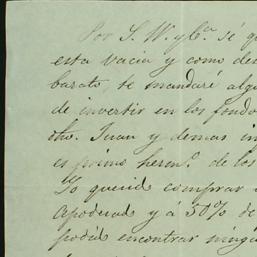 Por S. W. y Cª. sé q
esta vacia y como de
barato, te mandaré alg
de invertir en los fondo
otro. Juan y demas in
es primo hermº. de los
Yo queria comprar
apoderado y á 50% de
podido encontrar ningu